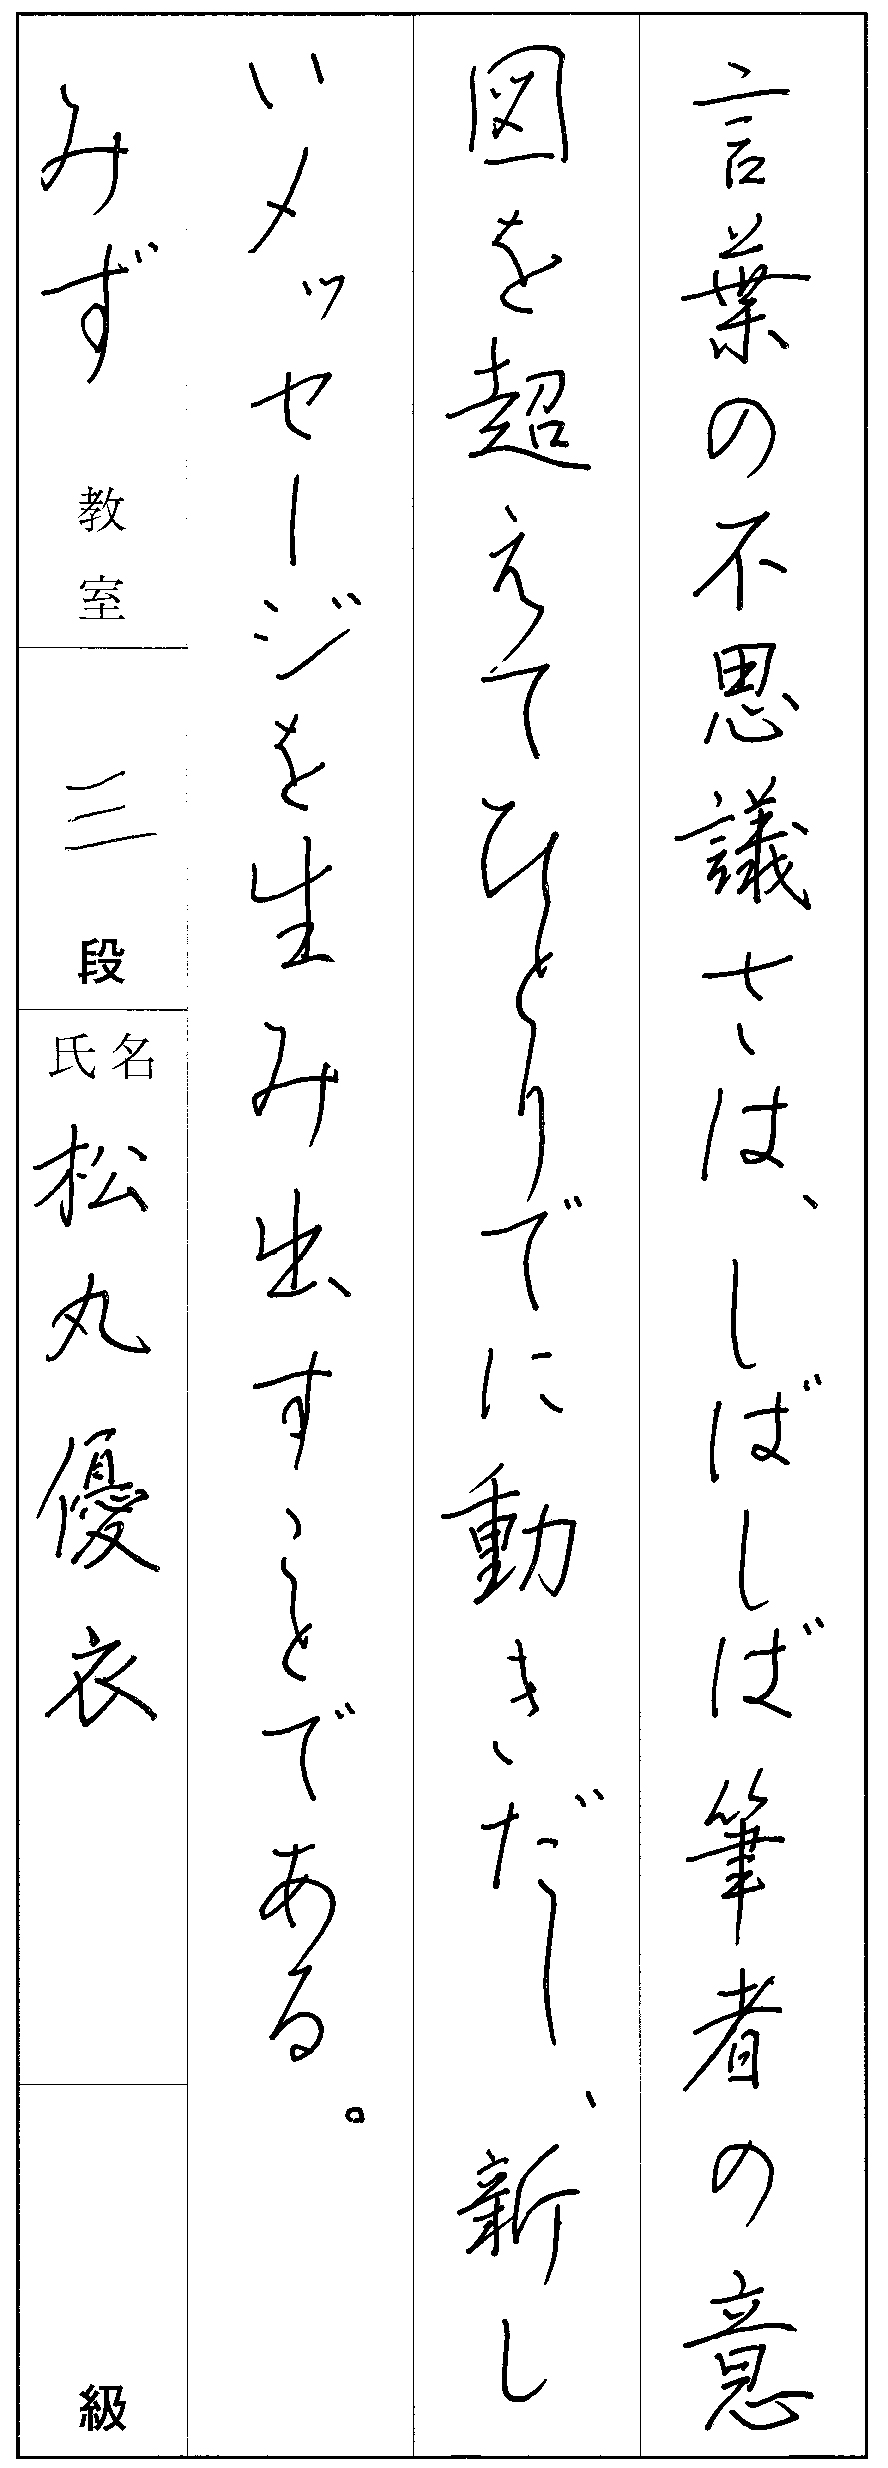 言葉の不思議さは、しばしば筆者の意
図を超えてひとりでに動きだし、新し
いメッセージを生み出すことである。
みず 教室
三 段
氏名 松丸優衣
級